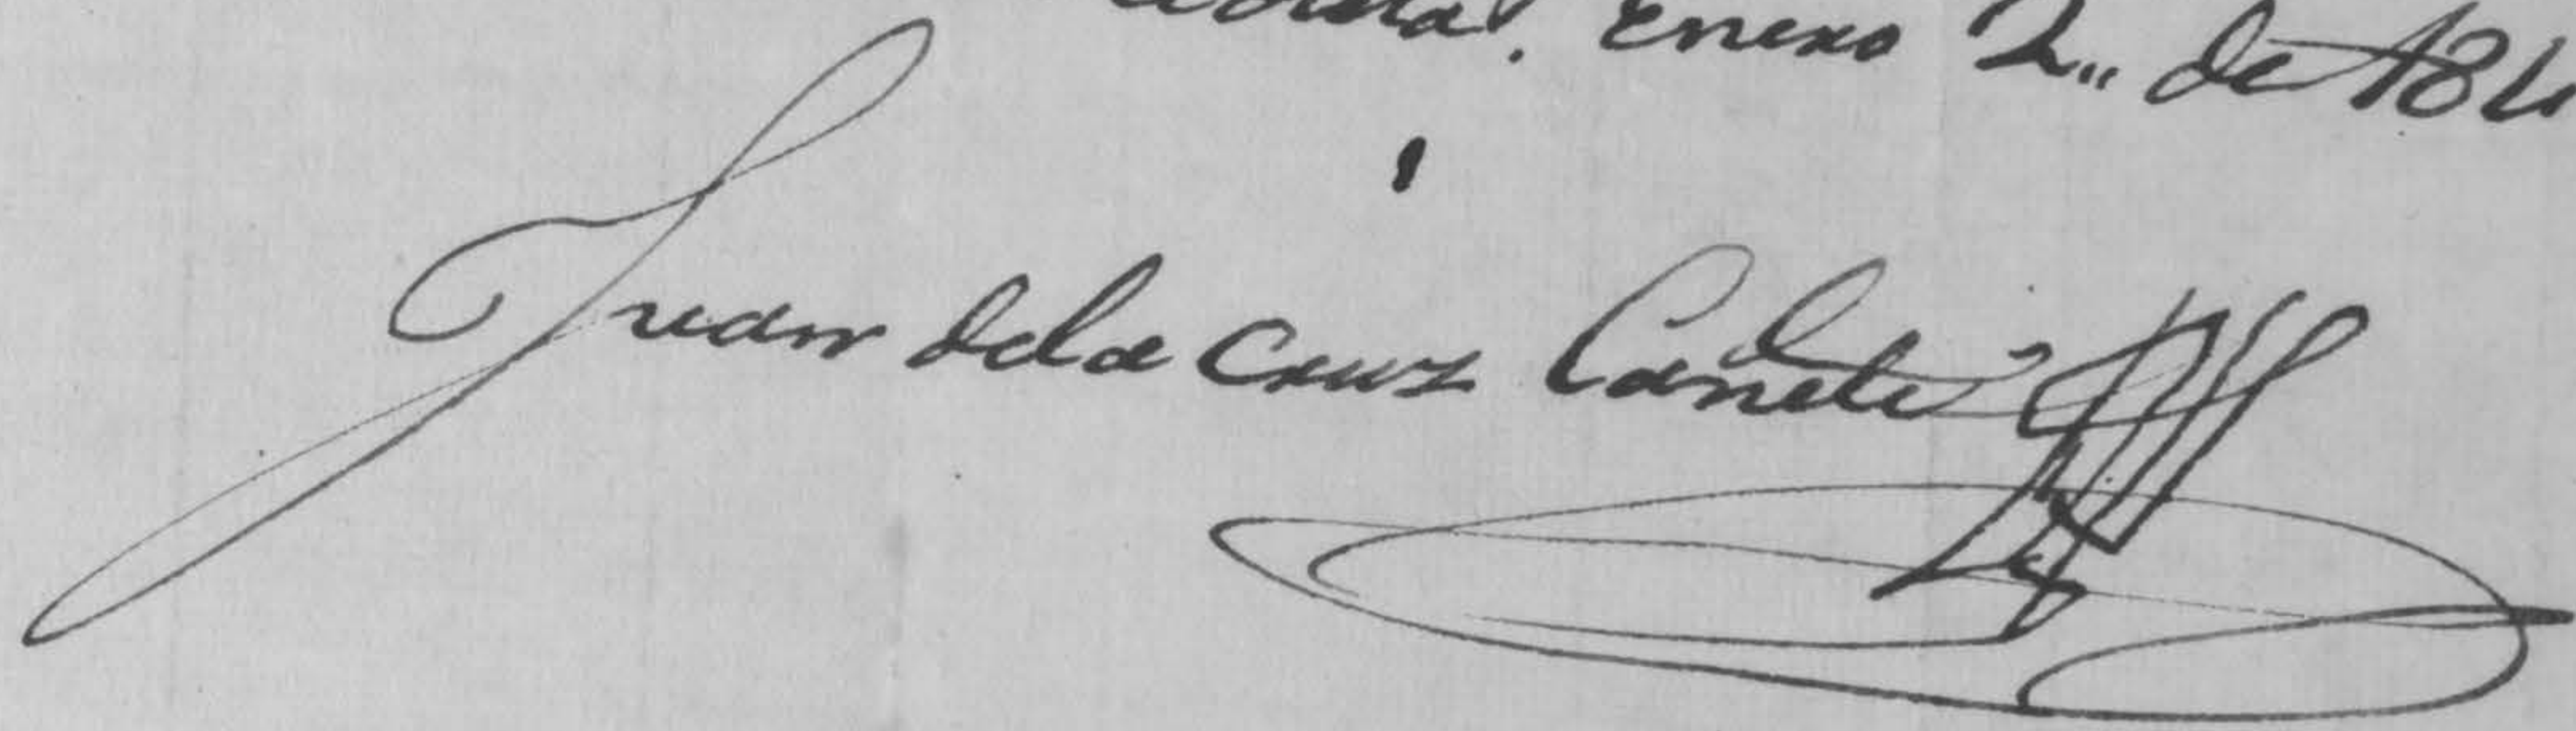 Enero 2" de 184
Juan dela Cruz Cañete